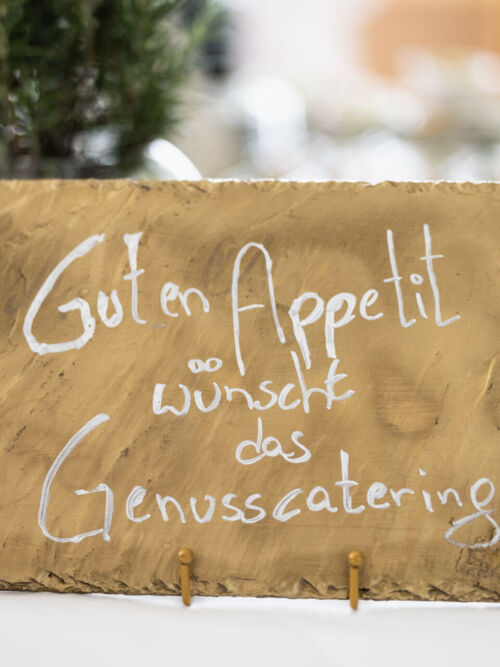 Guten Appetit
wünscht
das
Genusscatering